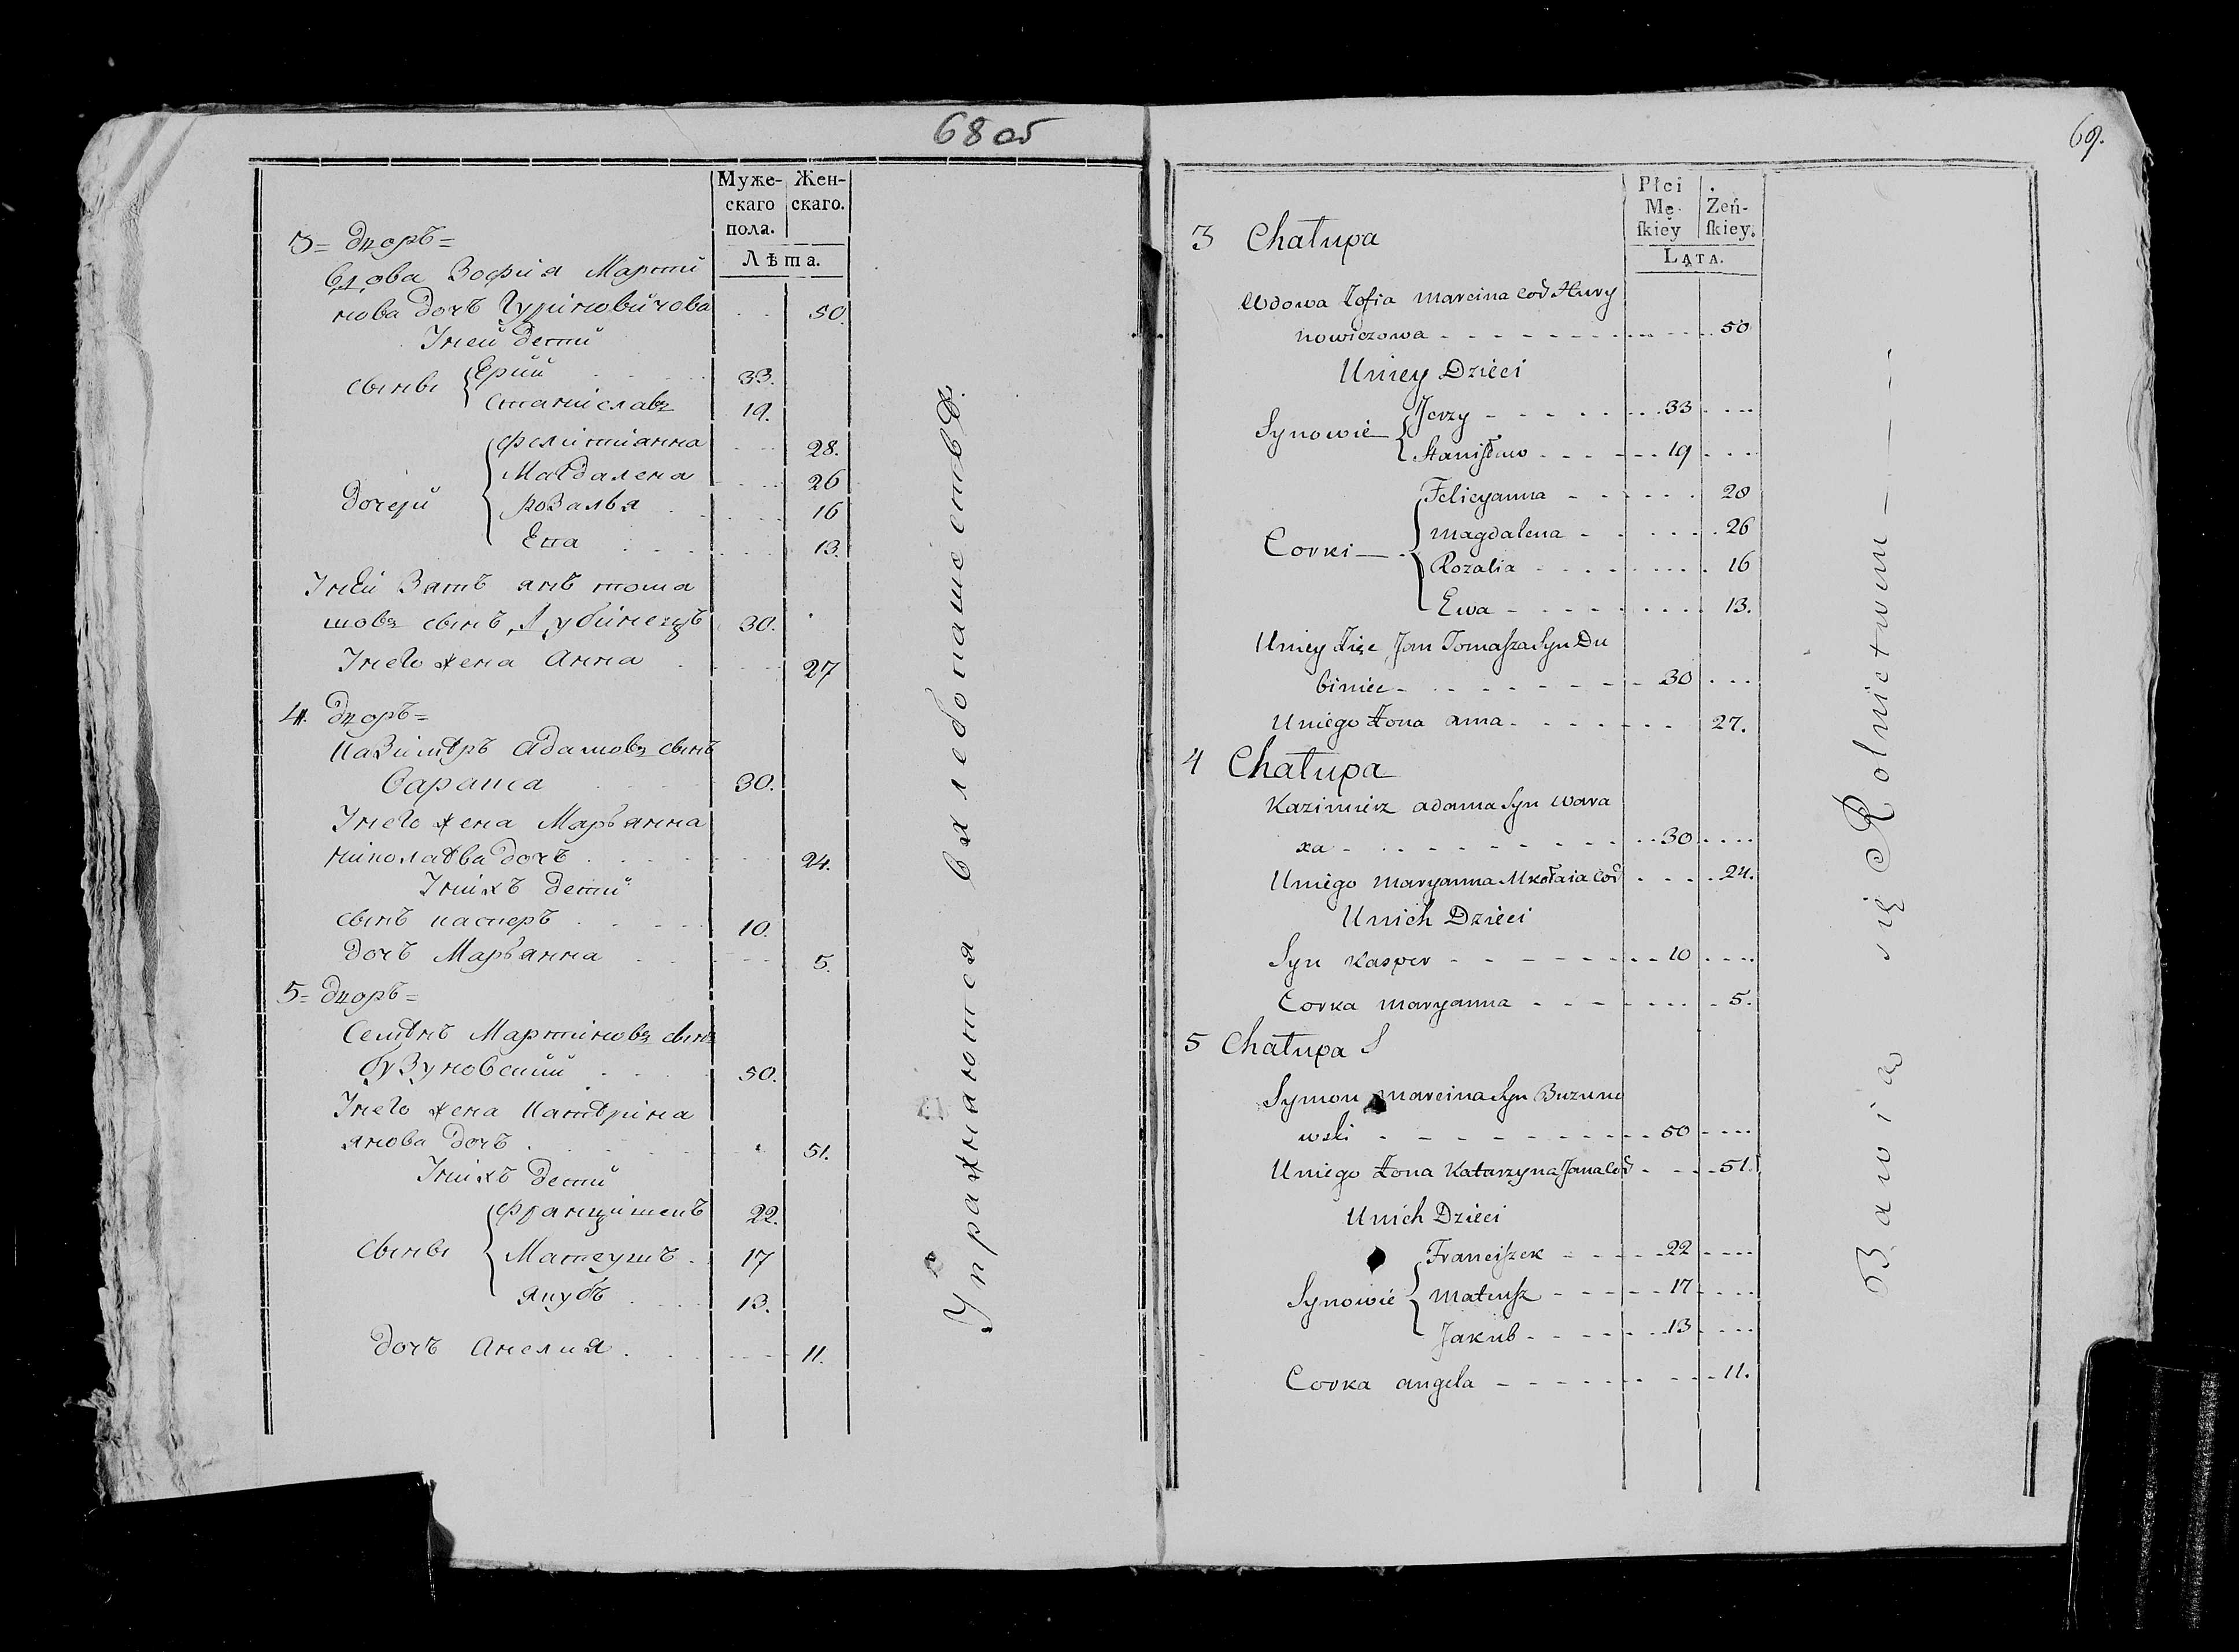 68 об
Муже-
скаго
пола.
Жен-
скаго.
Лѣта.
3= дворъ=
Вдова Зофія Марти
нова дочъ Гуріновичова . . 50.
У ней дети
сыны Ерий 33.
Станиславъ 19.
дочери Фелитіанна 28.
Магдалена 26
розалья 16
Ева 13.
У ней Зять янъ тома
шовъ сынъ Дубінецъ 30.
У него жена Анна 27
4. дворъ=
Казимѣръ Адамовъ сынъ
Вараха 30.
У него жена Марьянна
миколаѣва дочъ 24.
У нихъ дети
сынъ касперъ 10.
дочъ Марьянна 5.
5= дворъ=
Семѣнъ Мартиновъ сынъ
бузуновский 50.
У него жена Катѣрина
янова дочъ 51.
У нихъ дети
сыны Францишекъ 22.
Матеушъ 17
якубъ 13.
дочъ Анелия 11.
Упражнаются вхлебопашественѣ
69.
Płci
Mę-
ſkiey
Żeń-
ſkiey.
LATA.
3 Chałupa
Wdowa Zofia Marcina Cod Hury
nowiczowa 50
U niey Dzieci
Synowie Jerzy 33
Staniſław 19
Corki Felicyanna 28
Magdalena 26
Rozalia 16
Ewa 13.
U niey Zięc Jan Tomaſza Syn Du
biniec 30
U niego Żona anna 27.
4 Chałupa
Kazimierz adama Syn Wara
xa 30
U niego maryanna Mikołaia Cod 24.
U nich Dzieci
Syn Kasper 10
Corka maryanna 5.
5 Chałupa
Symon marcina Syn Buzuno
wski 50
U niego Żona Katarzyna Jana Cod 51.
U nich Dzieci
Synowie Franciſzek 22
Mateuſz 17
Jakub 13
Corka angela 11.
Bawią się Rolnictwem